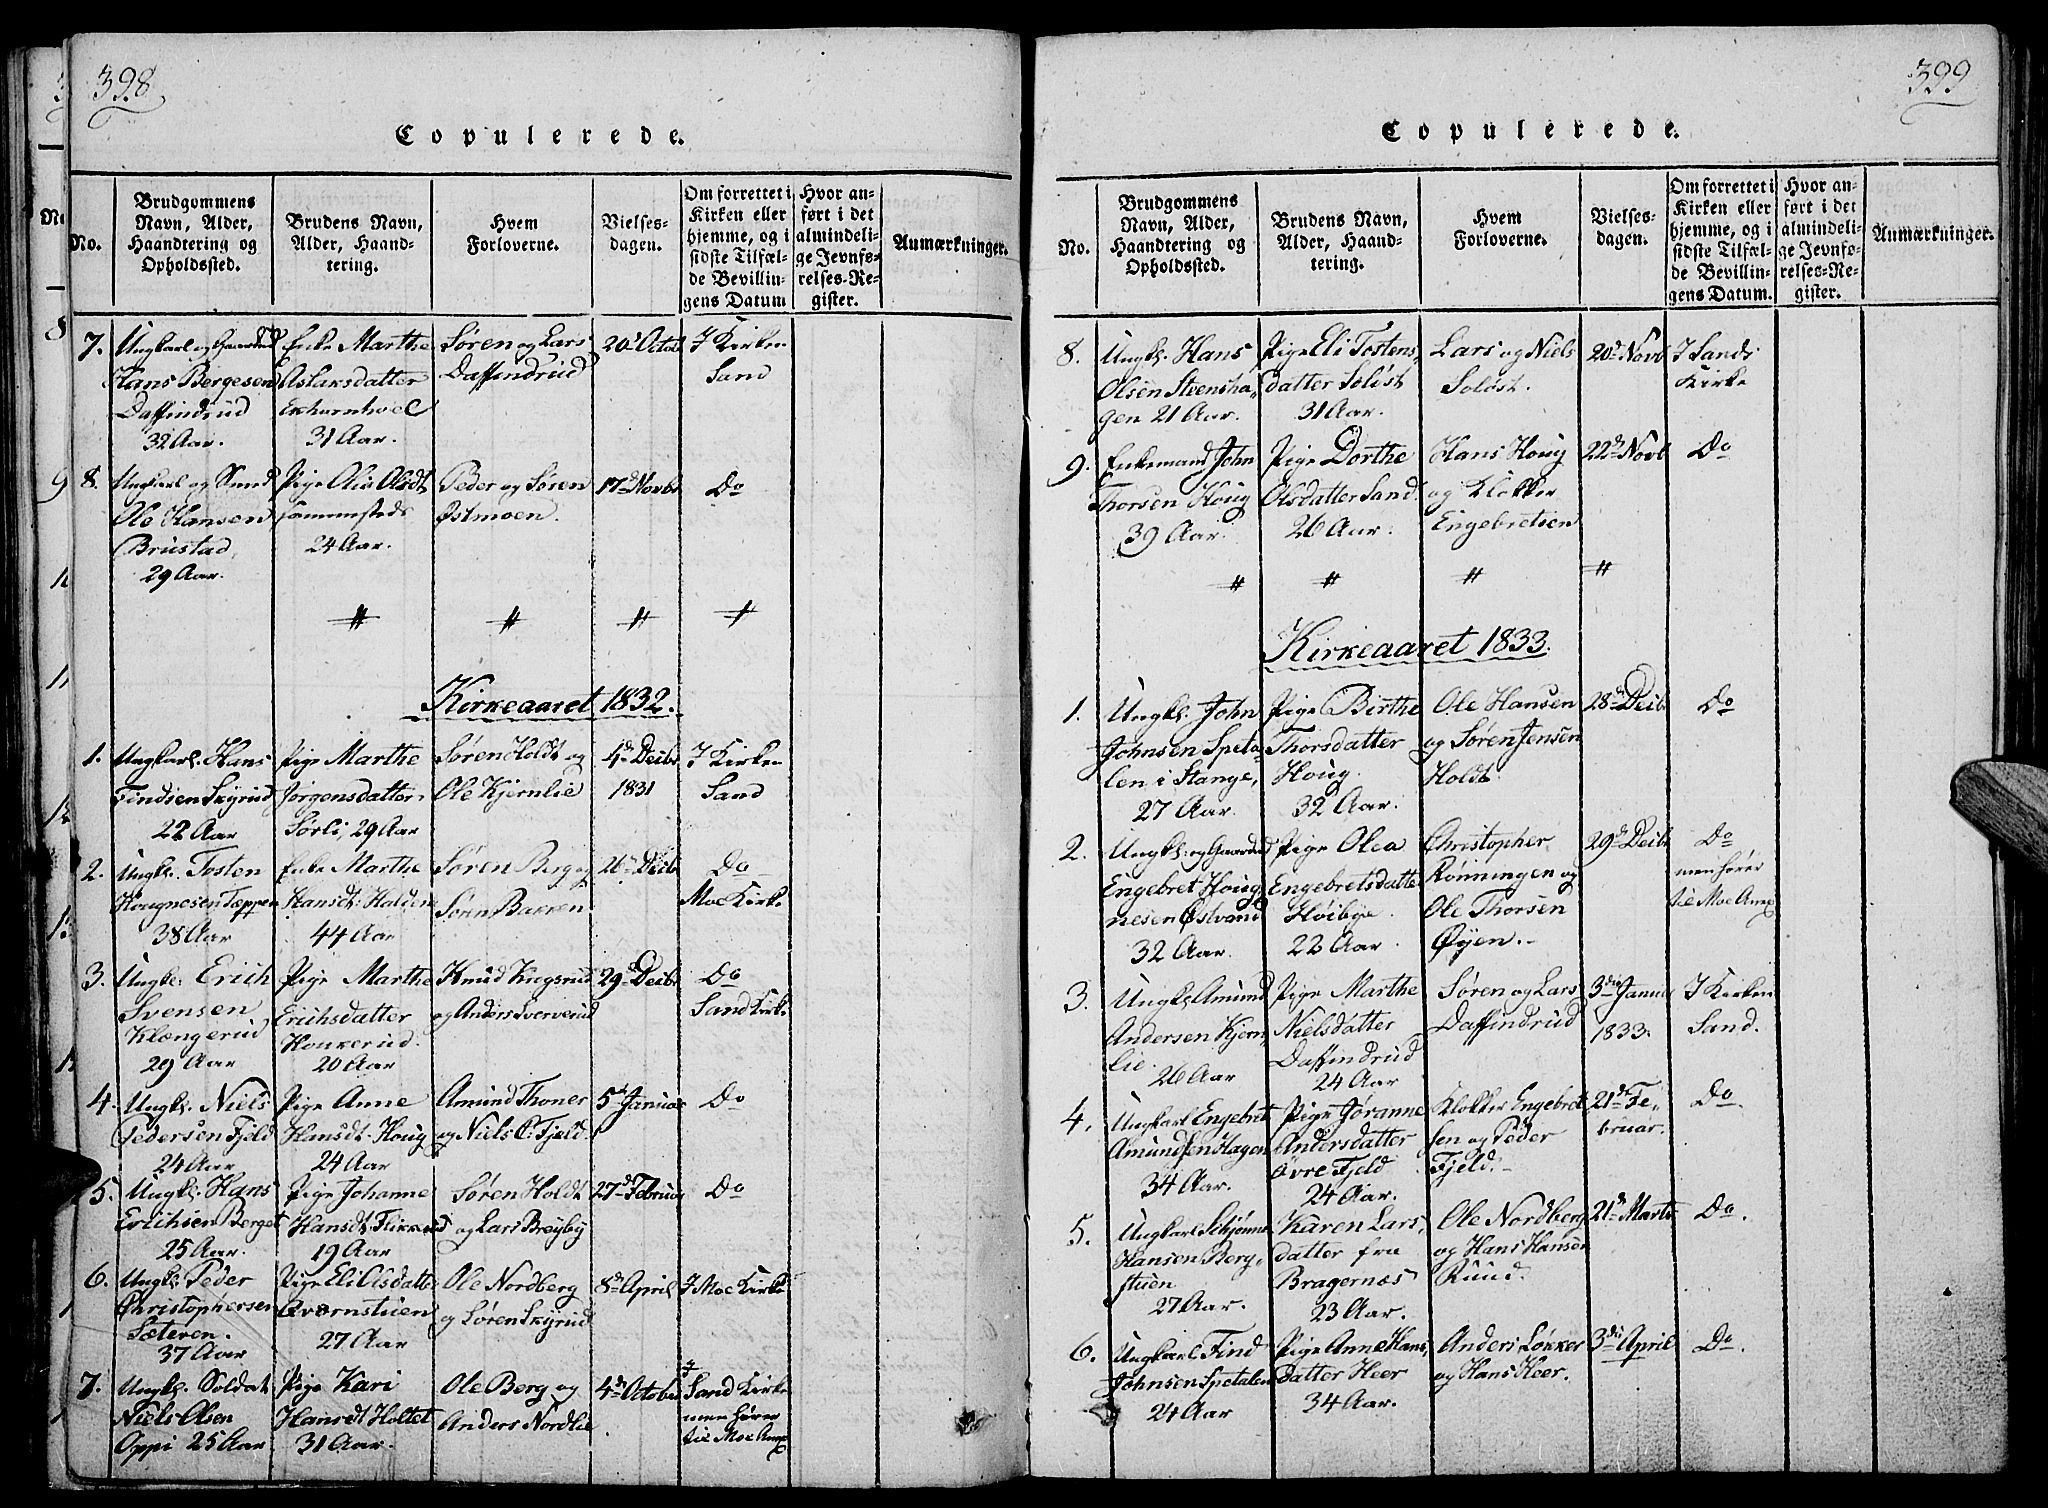 398
Copulerede.
No.
Brudgommens
Navn, Alder,
Haandtering og
Opholdssted.
Brudens Navn,
Alder, Haand-
tering.
Hvem
Forloverne.
Vielses-
dagen.
Om forrettet i
Kirken eller
hjemme, og i
sidste Tilfæl-
de Bevillin-
gens Datum
Hvor an-
ført i det
almindeli-
ge Jevnfø-
relses-Re-
gister.
Anmærkninger.
7.
Ungkarl og
Hans Bergesen
Daffindrud
32 Aar.
Enke Marthe
Aslaksdatter
Ekhornhoel
31 Aar.
Søren og Lars
Daffindrud
20d Octob
I Kirken
Sand
8.
Ungkarl og
Ole Hansen
Brustad,
29 Aar.
Pige Olia Olsdt
sammesteds
24 Aar.
Peder og Søren
Østmoen.
17d Novbr
Do
Kirkeaaret 1832.
1.
Ungkarl. Hans
Findsen Skyrud
22 Aar
Pige Marthe
Jørgensdatter
Sørli, 29 Aar
Søren Holdt og
Ole Kjernlie
4de Decbr
1831
I Kirken
Sand
2.
Ungkl. Tosten
Hougnesen Tæppen
38 Aar
Enke Marthe
Hansdt: Holden
44 Aar
Søren Berg og
Søren Bakken
26de Decbr
Do
Moe Kirke
3.
Ungkl: Erich
Svensen
Klængerud
29 Aar
Pige Marthe
Erichsdatter
Houkerud.
20 Aar
Knud
og Anders Sververud
29de Decbr
Do
Sand Kirke
4.
Ungkl. Niels
Pedersen Fjeld
24 Aar
Pige Anne
Hansdt. Houg
24 Aar
Amund Thoner
og Niels P: Fjeld.
5te Januar
Do
5.
Ungkl: Hans
Erichsen Berget
25 Aar.
Pige Johanne
Hansdt. Flikkerud
19 Aar
Søren Holdt
og Lars Brøyby
27d Februar
Do
6.
Ungkl: Peder
Christophersen
Sæteren.
37 Aar
Pige Eli Olsdatter
Qværnstuen
27 Aar
Ole Nordberg
og Søren Skyrud
8de April
I Moe Kirke
7.
Ungkl. Soldat
Niels Olsen
Oppi 25 Aar
Pige Kari
Hansdt Holtet
31 Aar.
Ole Berg og
Anders Nordlie
4de October
I
Sand Kirke
men hører
til Moe Annx
399
Copulerede.
No.
Brudgommens
Navn, Alder,
Haandtering og
Opholdssted.
Brudens Navn,
Alder, Haand-
tering.
Hvem
Forloverne.
Vielses-
dagen.
Om forrettet i
Kirken eller
hjemme, og i
sidste Tilfæl-
de Bevillin-
gens Datum.
Hvor an-
ført i det
almindeli-
ge Jevnfø-
relses-Re-
gister.
Anmærkninger.
8.
Ungkl. Hans
Olsen Steensha-
gen 21 Aar.
Pige Eli Tostens,
datter Soløst
31 Aar.
Lars og Niels
Soløst.
20d Novb
I Sands
Kirke
9.
Enkemand John
Thorsen Houg
39 Aar.
Pige Dorthe
Olsdatter Sand.
26 Aar.
Hans Houg
og Klokker
Engebretsen
22de Novb
Do
Kirkeaaret 1833.
1.
Ungkl. John
Johnsen Speta-
len i Stange,
27 Aar.
Pige Birthe
Thorsdatter
Houg.
32 Aar.
Ole Hansen
og Søren Jensen
Holdt
28de Decbr
Do
2.
Ungkl: og
Engebret Houg
nesen Østvand
32 Aar.
Pige Olea
Engebretsdatter
Høibye.
22 Aar.
Christopher
Rønningen og
Ole Thorsen
Øyen.
29de Decbr
Do
men hører
til Moe Annx
3.
Ungkl. Amund
Andersen Kjern-
lie.
26 Aar
Pige Marthe
Nielsdatter
Daffindrud
24 Aar
Søren og Lars
Daffindrud
3die Januar
1833.
I Kirken
Sand.
4.
Ungkarl Engebret
Amundsen Hagen
34 Aar.
Pige Jøranne
Andersdatter
Øvre Fjeld
24 Aar.
Klokker Engebret
sen og Peder
Fjeld.
21de Fe-
bruar.
Do.
5.
Ungkarl Schjønne
Hansen Berg-
stuen
27 Aar.
Karen Lars,
datter fra
Bragernæs
23 Aar.
Ole Nordberg
og Hans Hansen
Ruud.
21de Marts
Do.
6.
Ungkarl Find
Johnsen Spetalen
24 Aar
Pige Anne Hans,
datter Heer
34 Aar.
Anders Løkker
og Hans Heer.
3die April
Do.